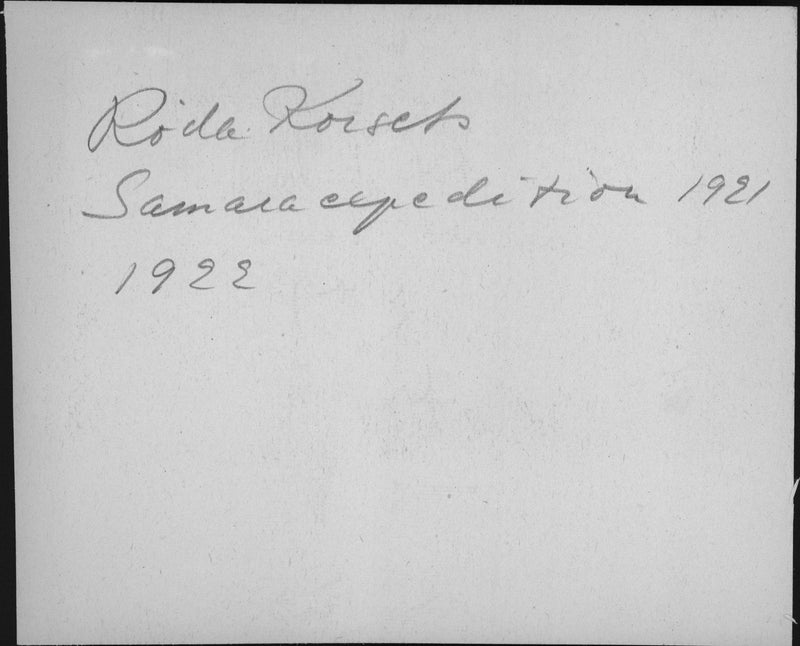 Röda Korsets
Samaraexpedition 1921
1922